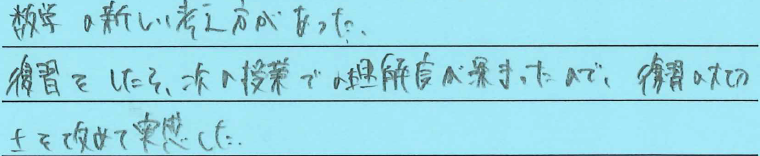 数学の新しい考え方があった。
復習をしたら、次の授業での理解度が深まったので、復習の大切
さを改めて実感した。